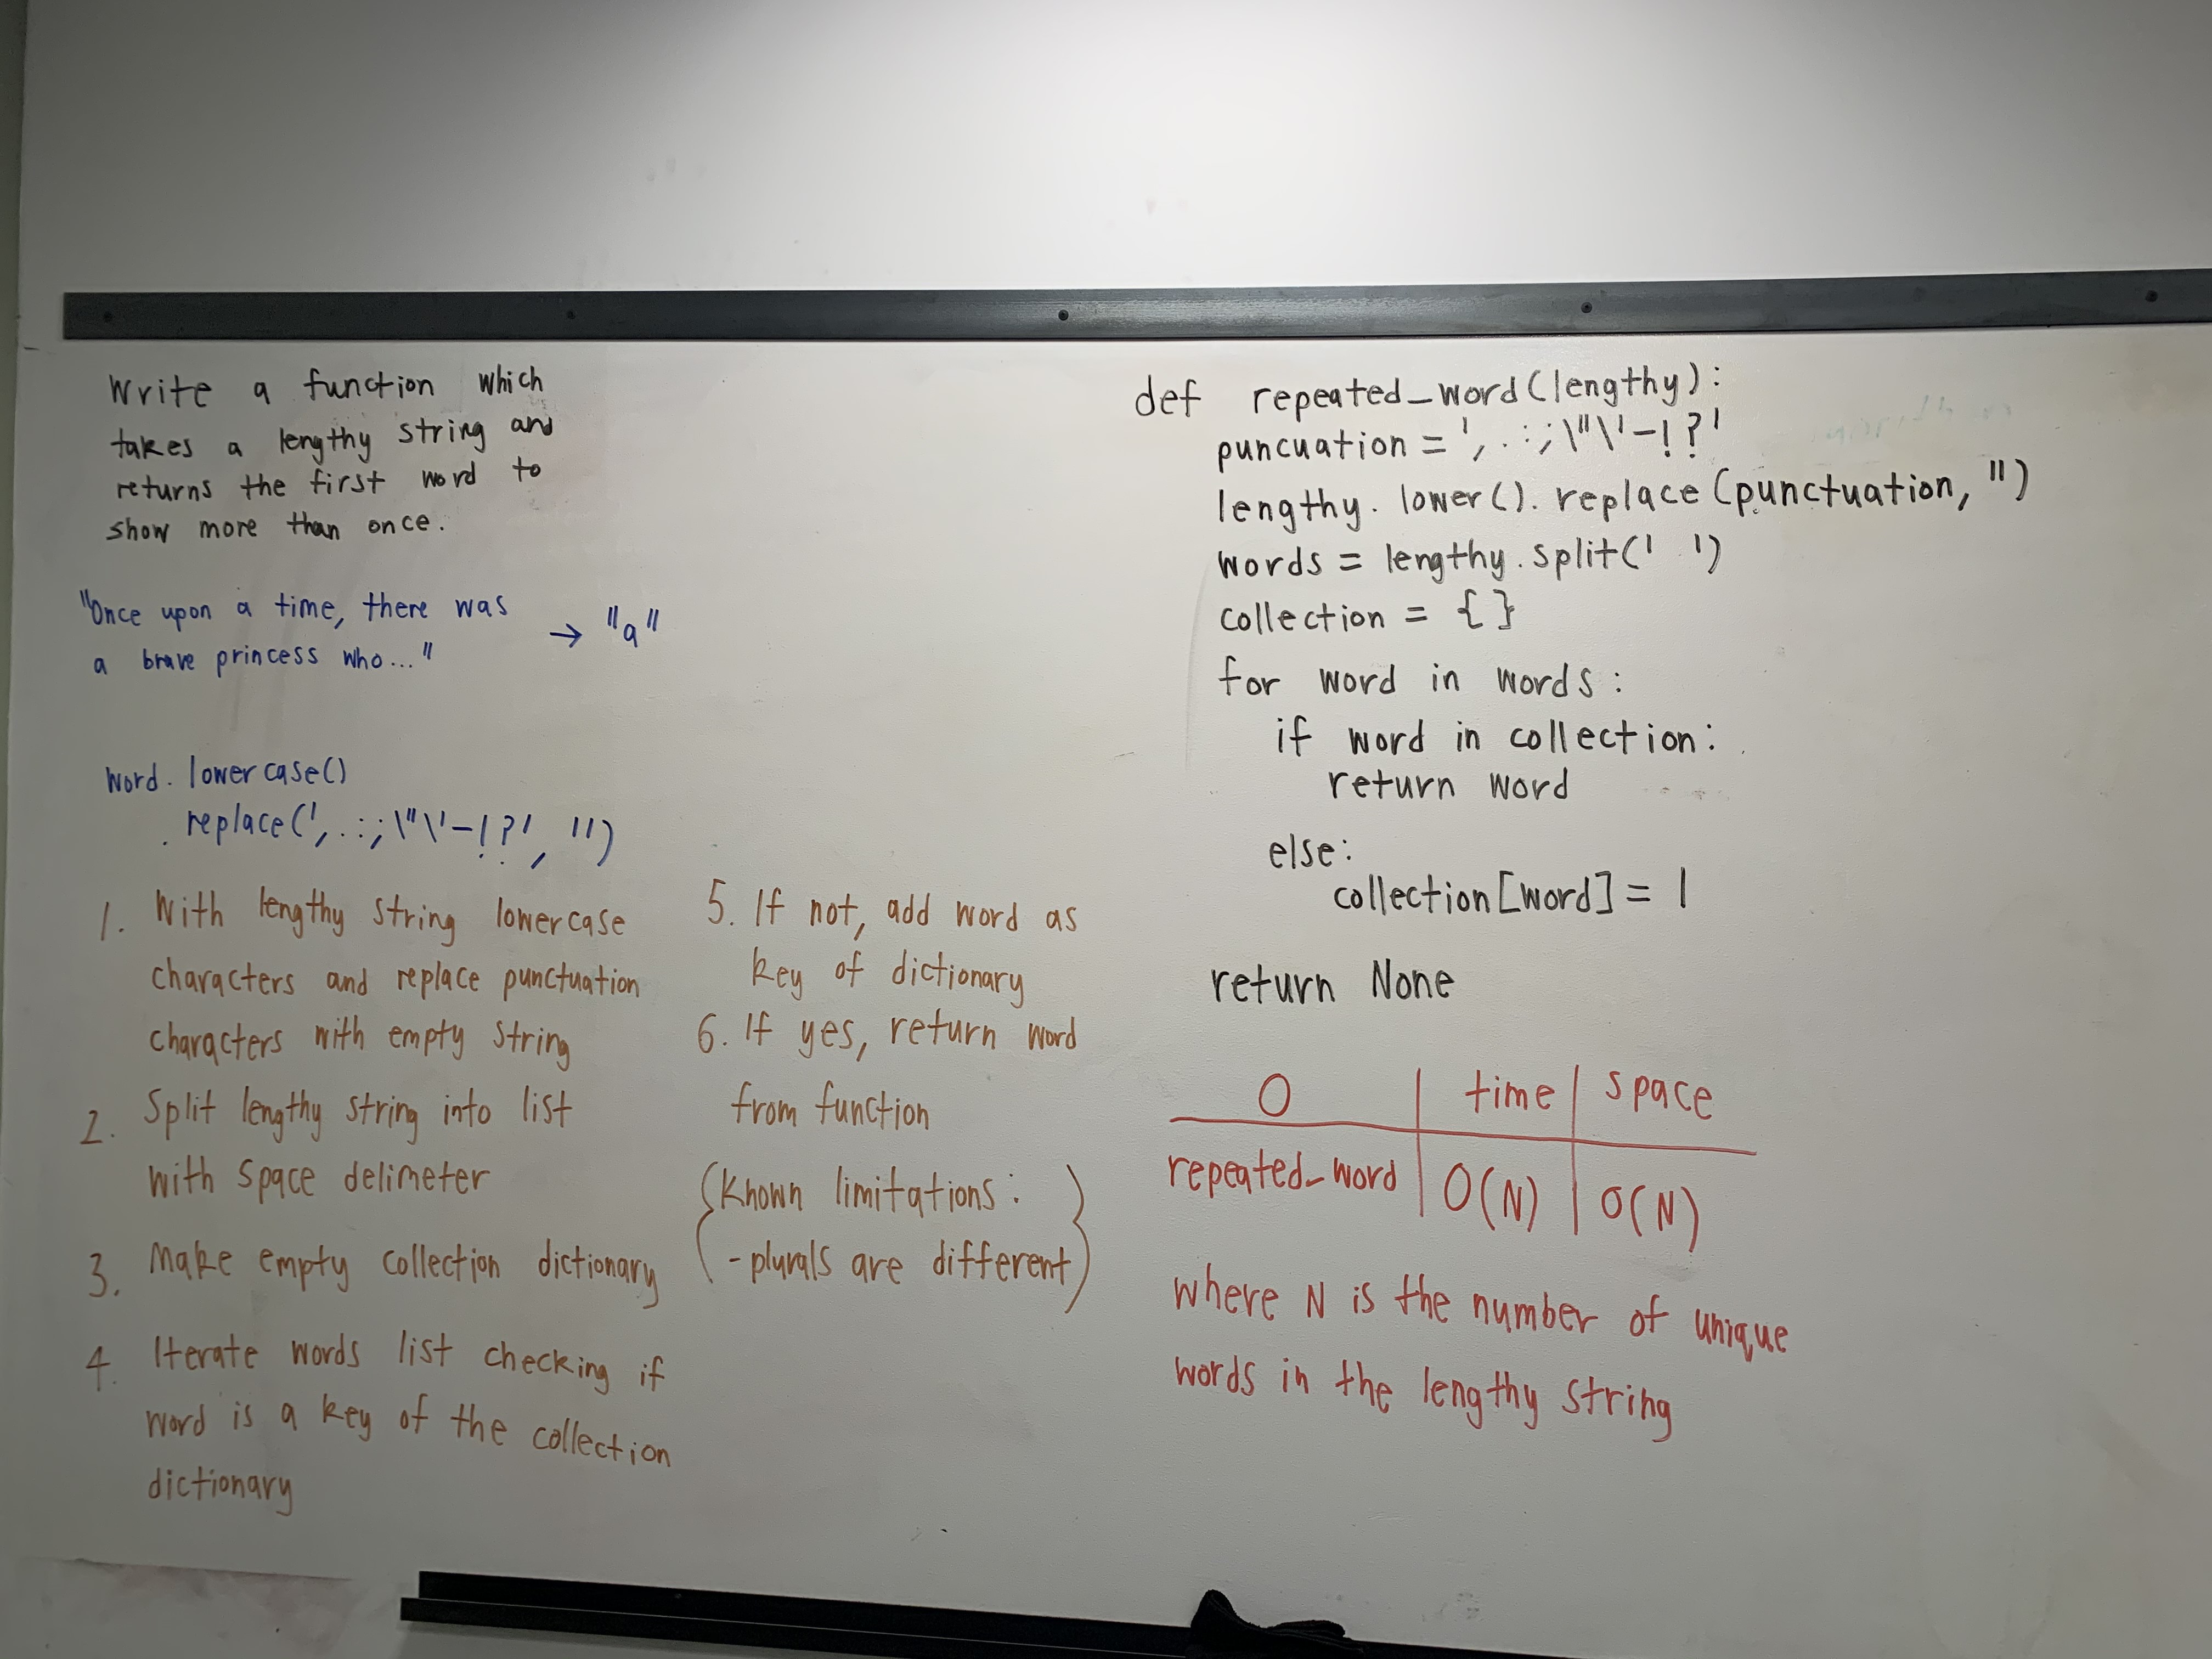 Write a function which
takes a lengthy string and
returns the first word to
show more than once.
"Once upon a time, there was
a brave princess who..." → "a"
word.lowercase()
.replace(',.:;\"\'-!?', '')
1. With lengthy string lowercase
characters and replace punctuation
characters with empty string
2. Split lengthy string into list
with space delimeter
3. Make empty collection dictionary
4. Iterate words list checking if
word is a key of the collection
dictionary
5. If not, add word as
key of dictionary
6. If yes, return word
from function
{Known limitations:
- plurals are different}
def repeated_word(lengthy):
puncuation = ',.:;\"\'-!?'
lengthy.lower().replace(punctuation, '')
words = lengthy.split(' ')
collection = {}
for word in words:
if word in collection:
return word
else:
collection[word] = 1
return None
O | time | space
repeated_word | O(N) | O(N)
where N is the number of unique
words in the lengthy string